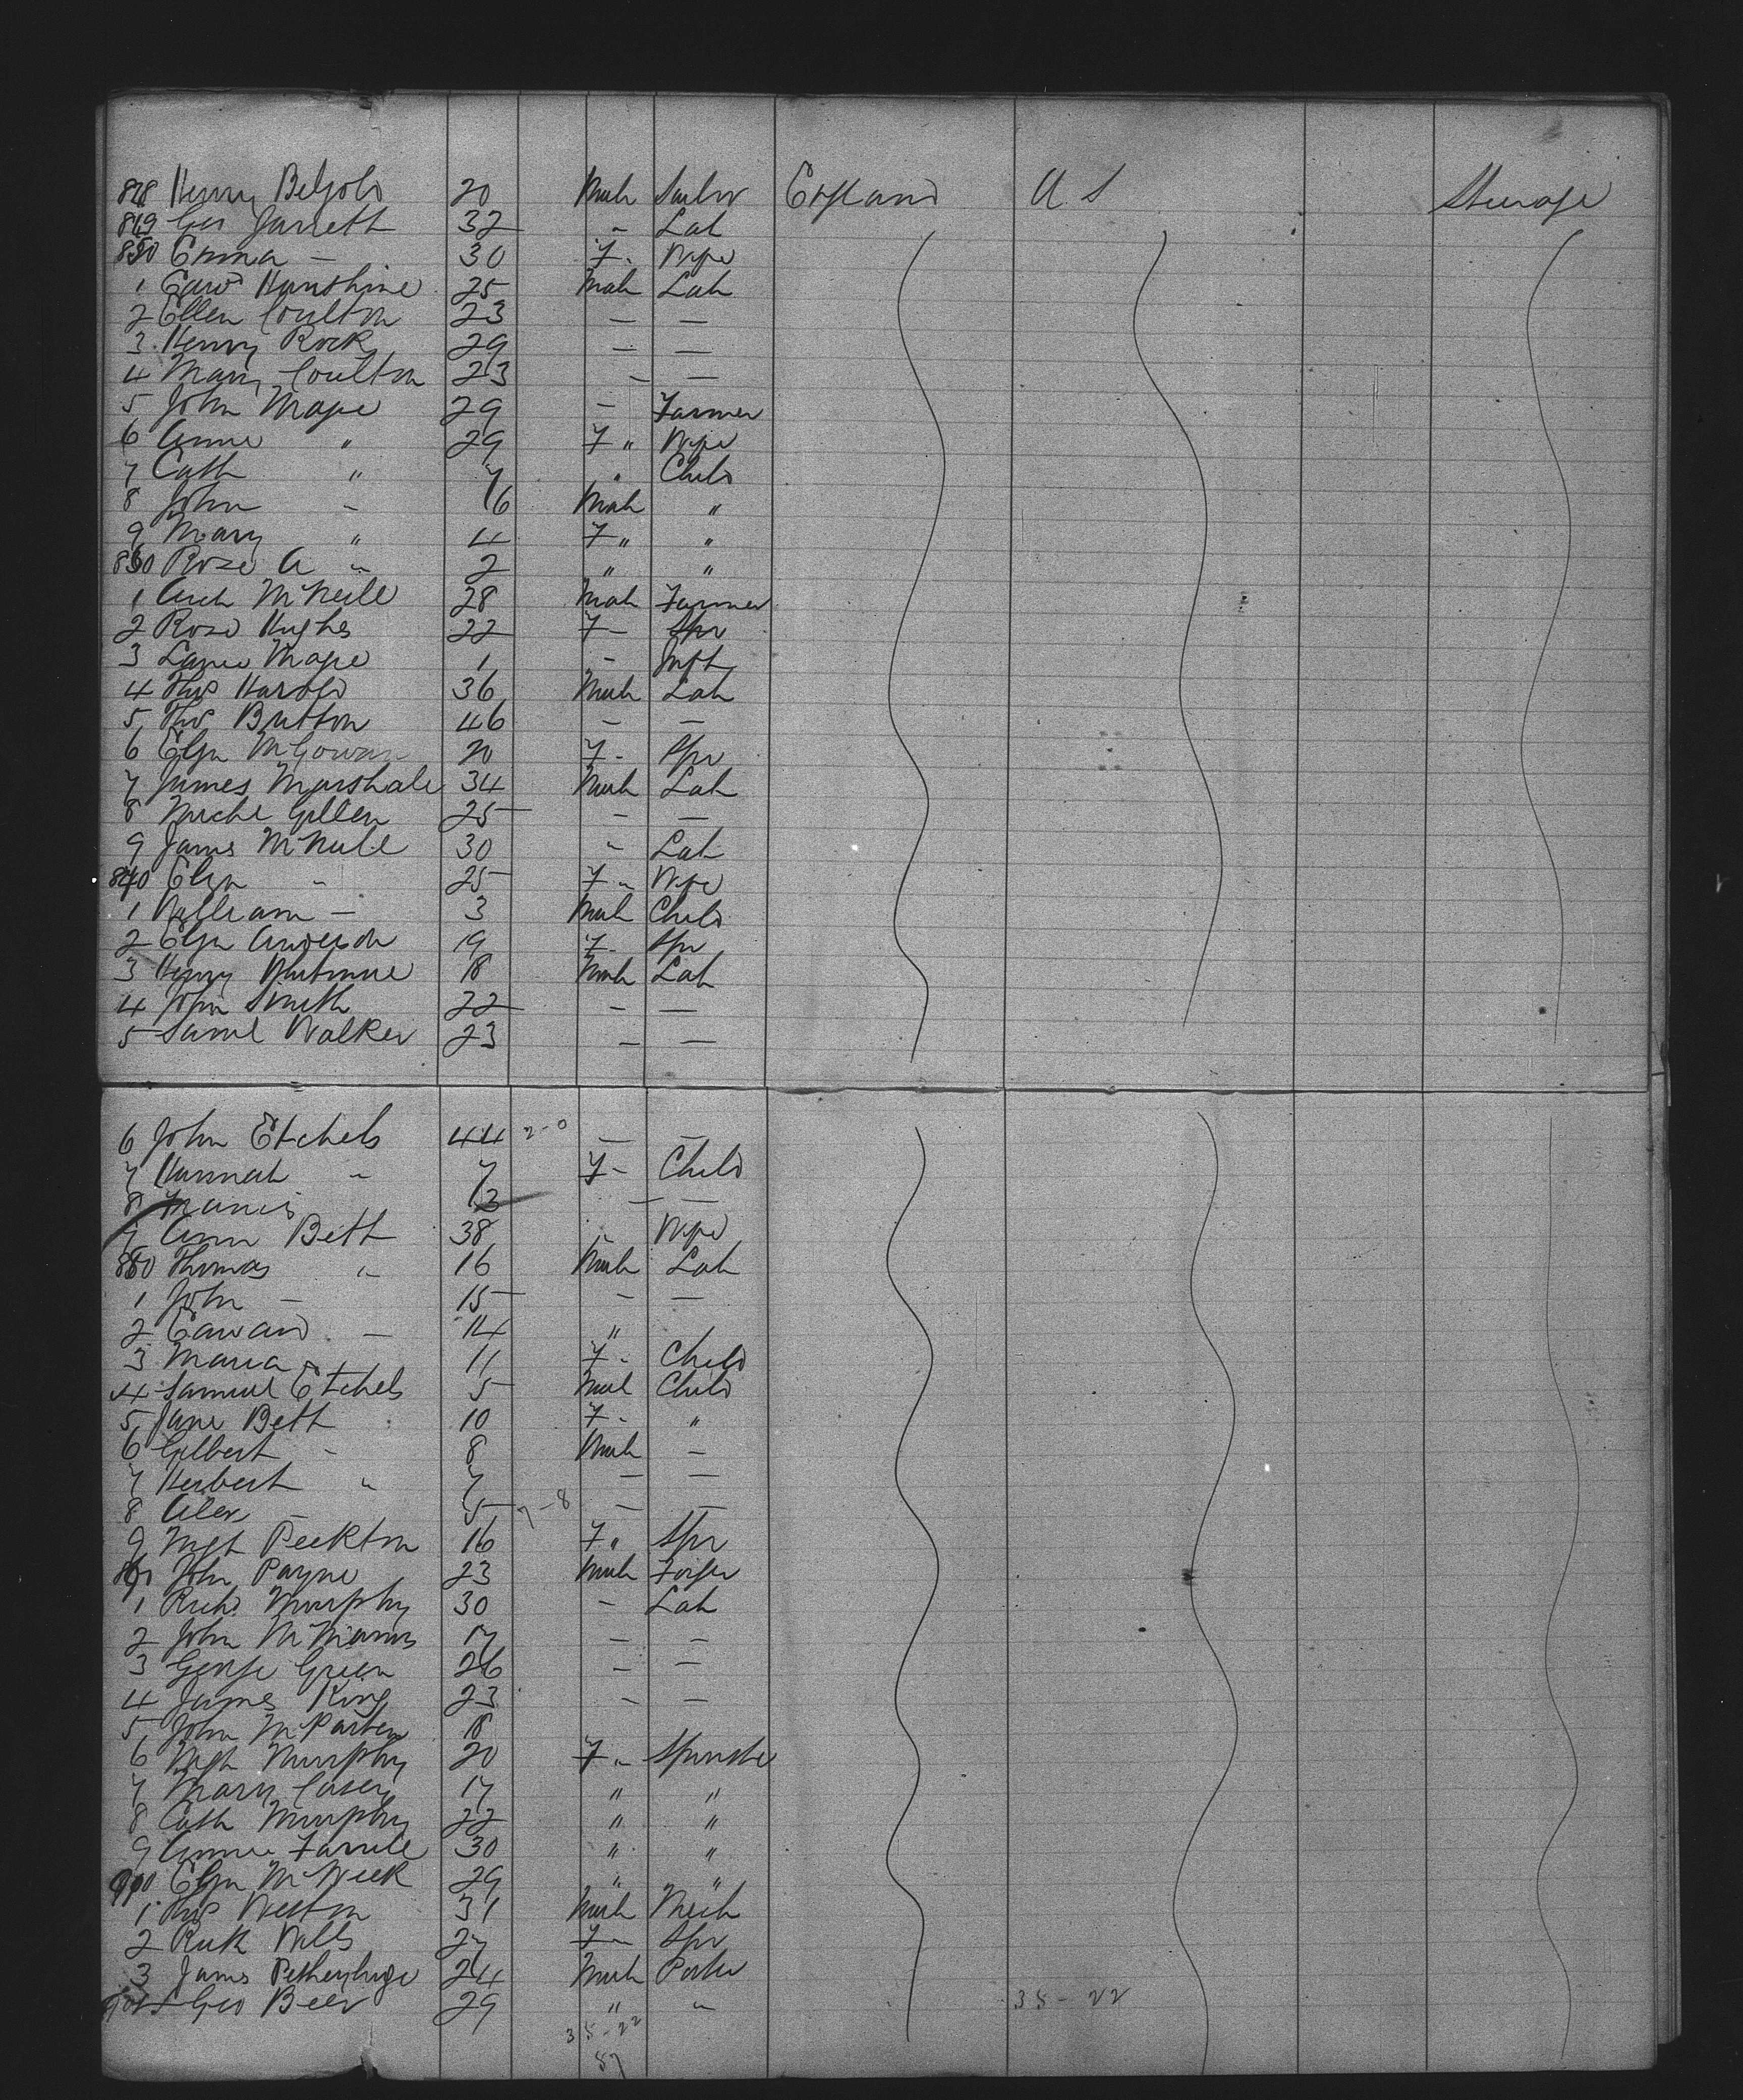 Henry 20 Male England U S Steerage
Geo Jarrett 32 " Lab
Emma - 30 F - Wife
1 Edwd Hunshine 25 Male Lab
2 Ellen Coulton 23 - -
3 Henry Rock 29 - -
4 Mary Coulton 23 - -
5 John Mape 29 - Farmer
6 Anne " 29 F " Wife
7 Cath " 7 " Child
8 John - 6 Male "
9 Mary " 4 F " "
Rose A " 2 " "
1 Arch McNeill 28 Male Farmer
2 Rose Hughes 22 F - Spr
3 Mape 1 - Inft
4 Thos Harold 36 Male Lab
5 Thos Britton 46 - -
6 Elza McGowan 20 F - Spr
7 James Marshall 34 Male Lab
8 Michl Gillen 25 - -
9 James McNeill 30 " Lab
840 Elza " 25 F " Wife
1 William - 3 Male Child
2 Elza Anderson 19 F - Spr
3 Henry 18 Male Lab
4 John Smith 22 - -
5 Saml Walker 23 - -
6 John Etchels 44 2-0 - -
7 Hannah " 7 F - Child
8 Francis - -
Ann Bett 38 " Wife
Thomas " 16 Male Lab
1 John - 15 - -
2 Edward - 14 "
3 Maria " 11 F - Child
4 Samuel Etchels 5 Mal Child
5 Jane Bett 10 F - "
6 Gilbert - 8 Male -
7 Herbert " 7 - -
8 Alex - 5 7-8 - -
9 Mgt Peckton 16 F " Spr
John Payne 23 Male
1 Richd Murphy 30 - Lab
2 John McManus 17 - -
3 George Green 26 - -
4 James King 23 - -
5 John McParten 18
6 Mgt Murphy 20 F " Spinster
7 Mary Casey 17 " "
8 Cath Murphy 22 " "
9 Annie Farrell 30 " "
Elza 29 " "
1 Thos Weston 31 Male Mech
2 Wells 27 F " Spr
3 James Petherbrige 24 Male Porter
Geo Beer 29 " "
35-22 35-22